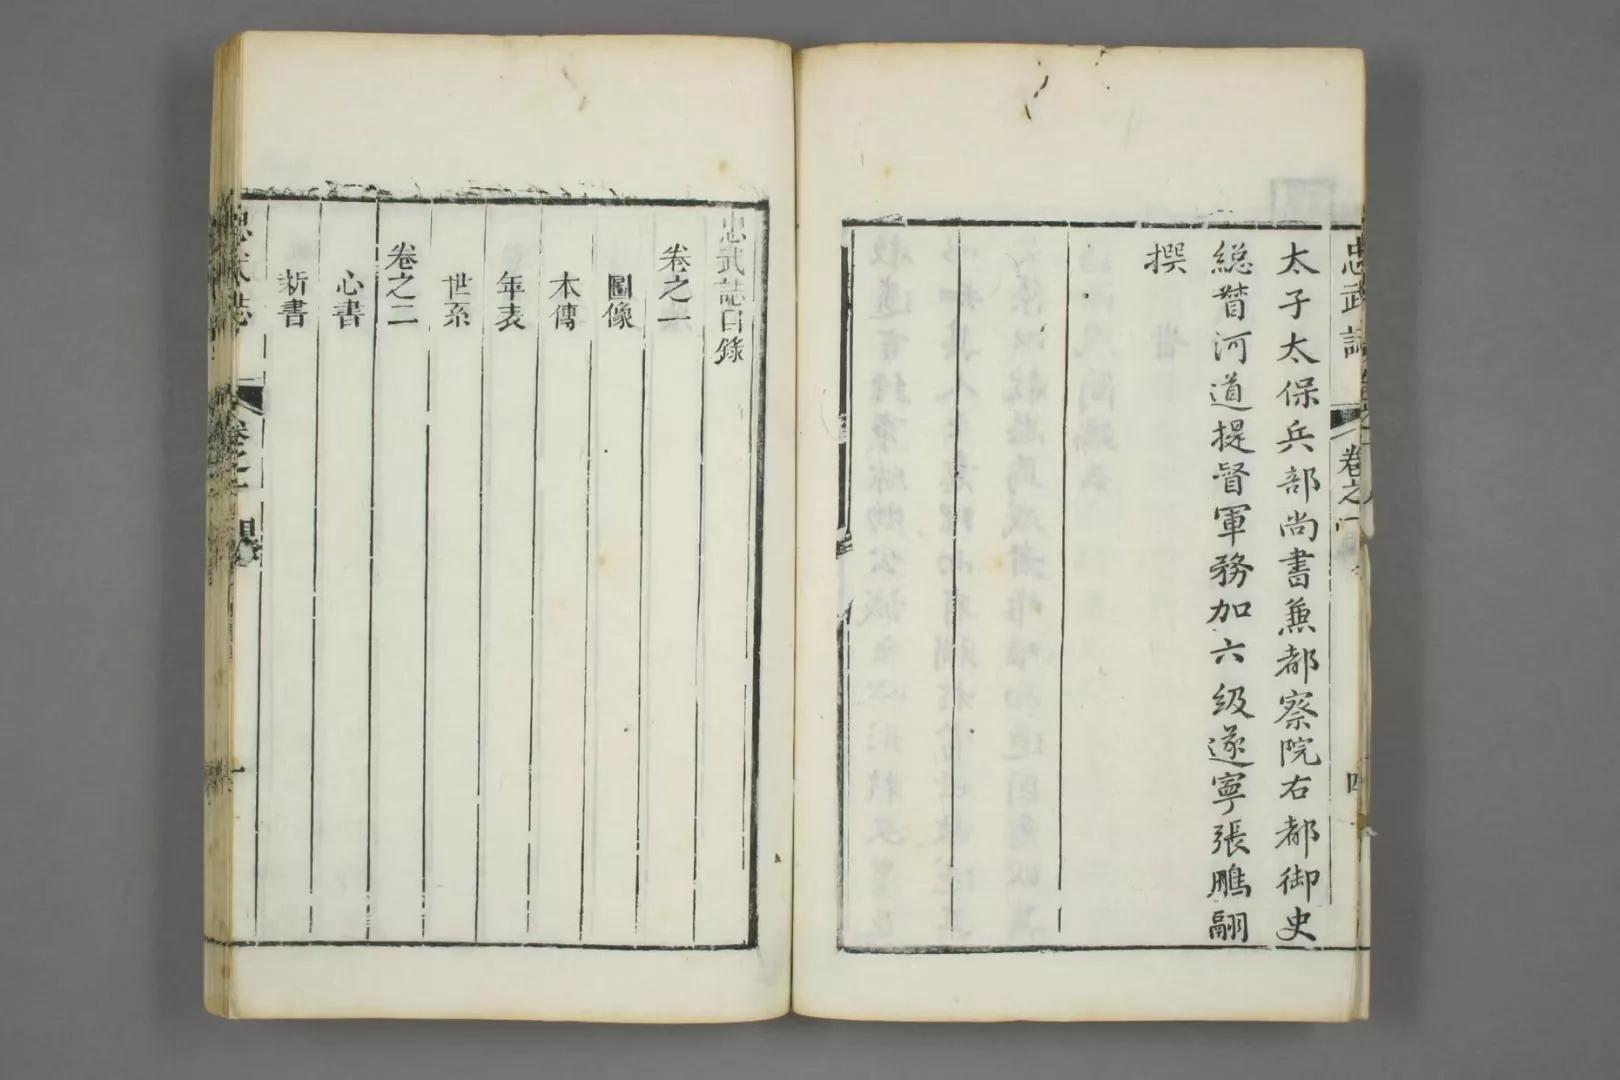 忠武誌
卷之一
四
太子太保兵部尚書兼都察院右都御史
総督河道提督軍務加六級遂寧張鵬翮
撰
忠武誌目錄
卷之一
圖像
本傳
年表
世系
卷之二
心書
新書
忠武誌
卷之一
目錄
一